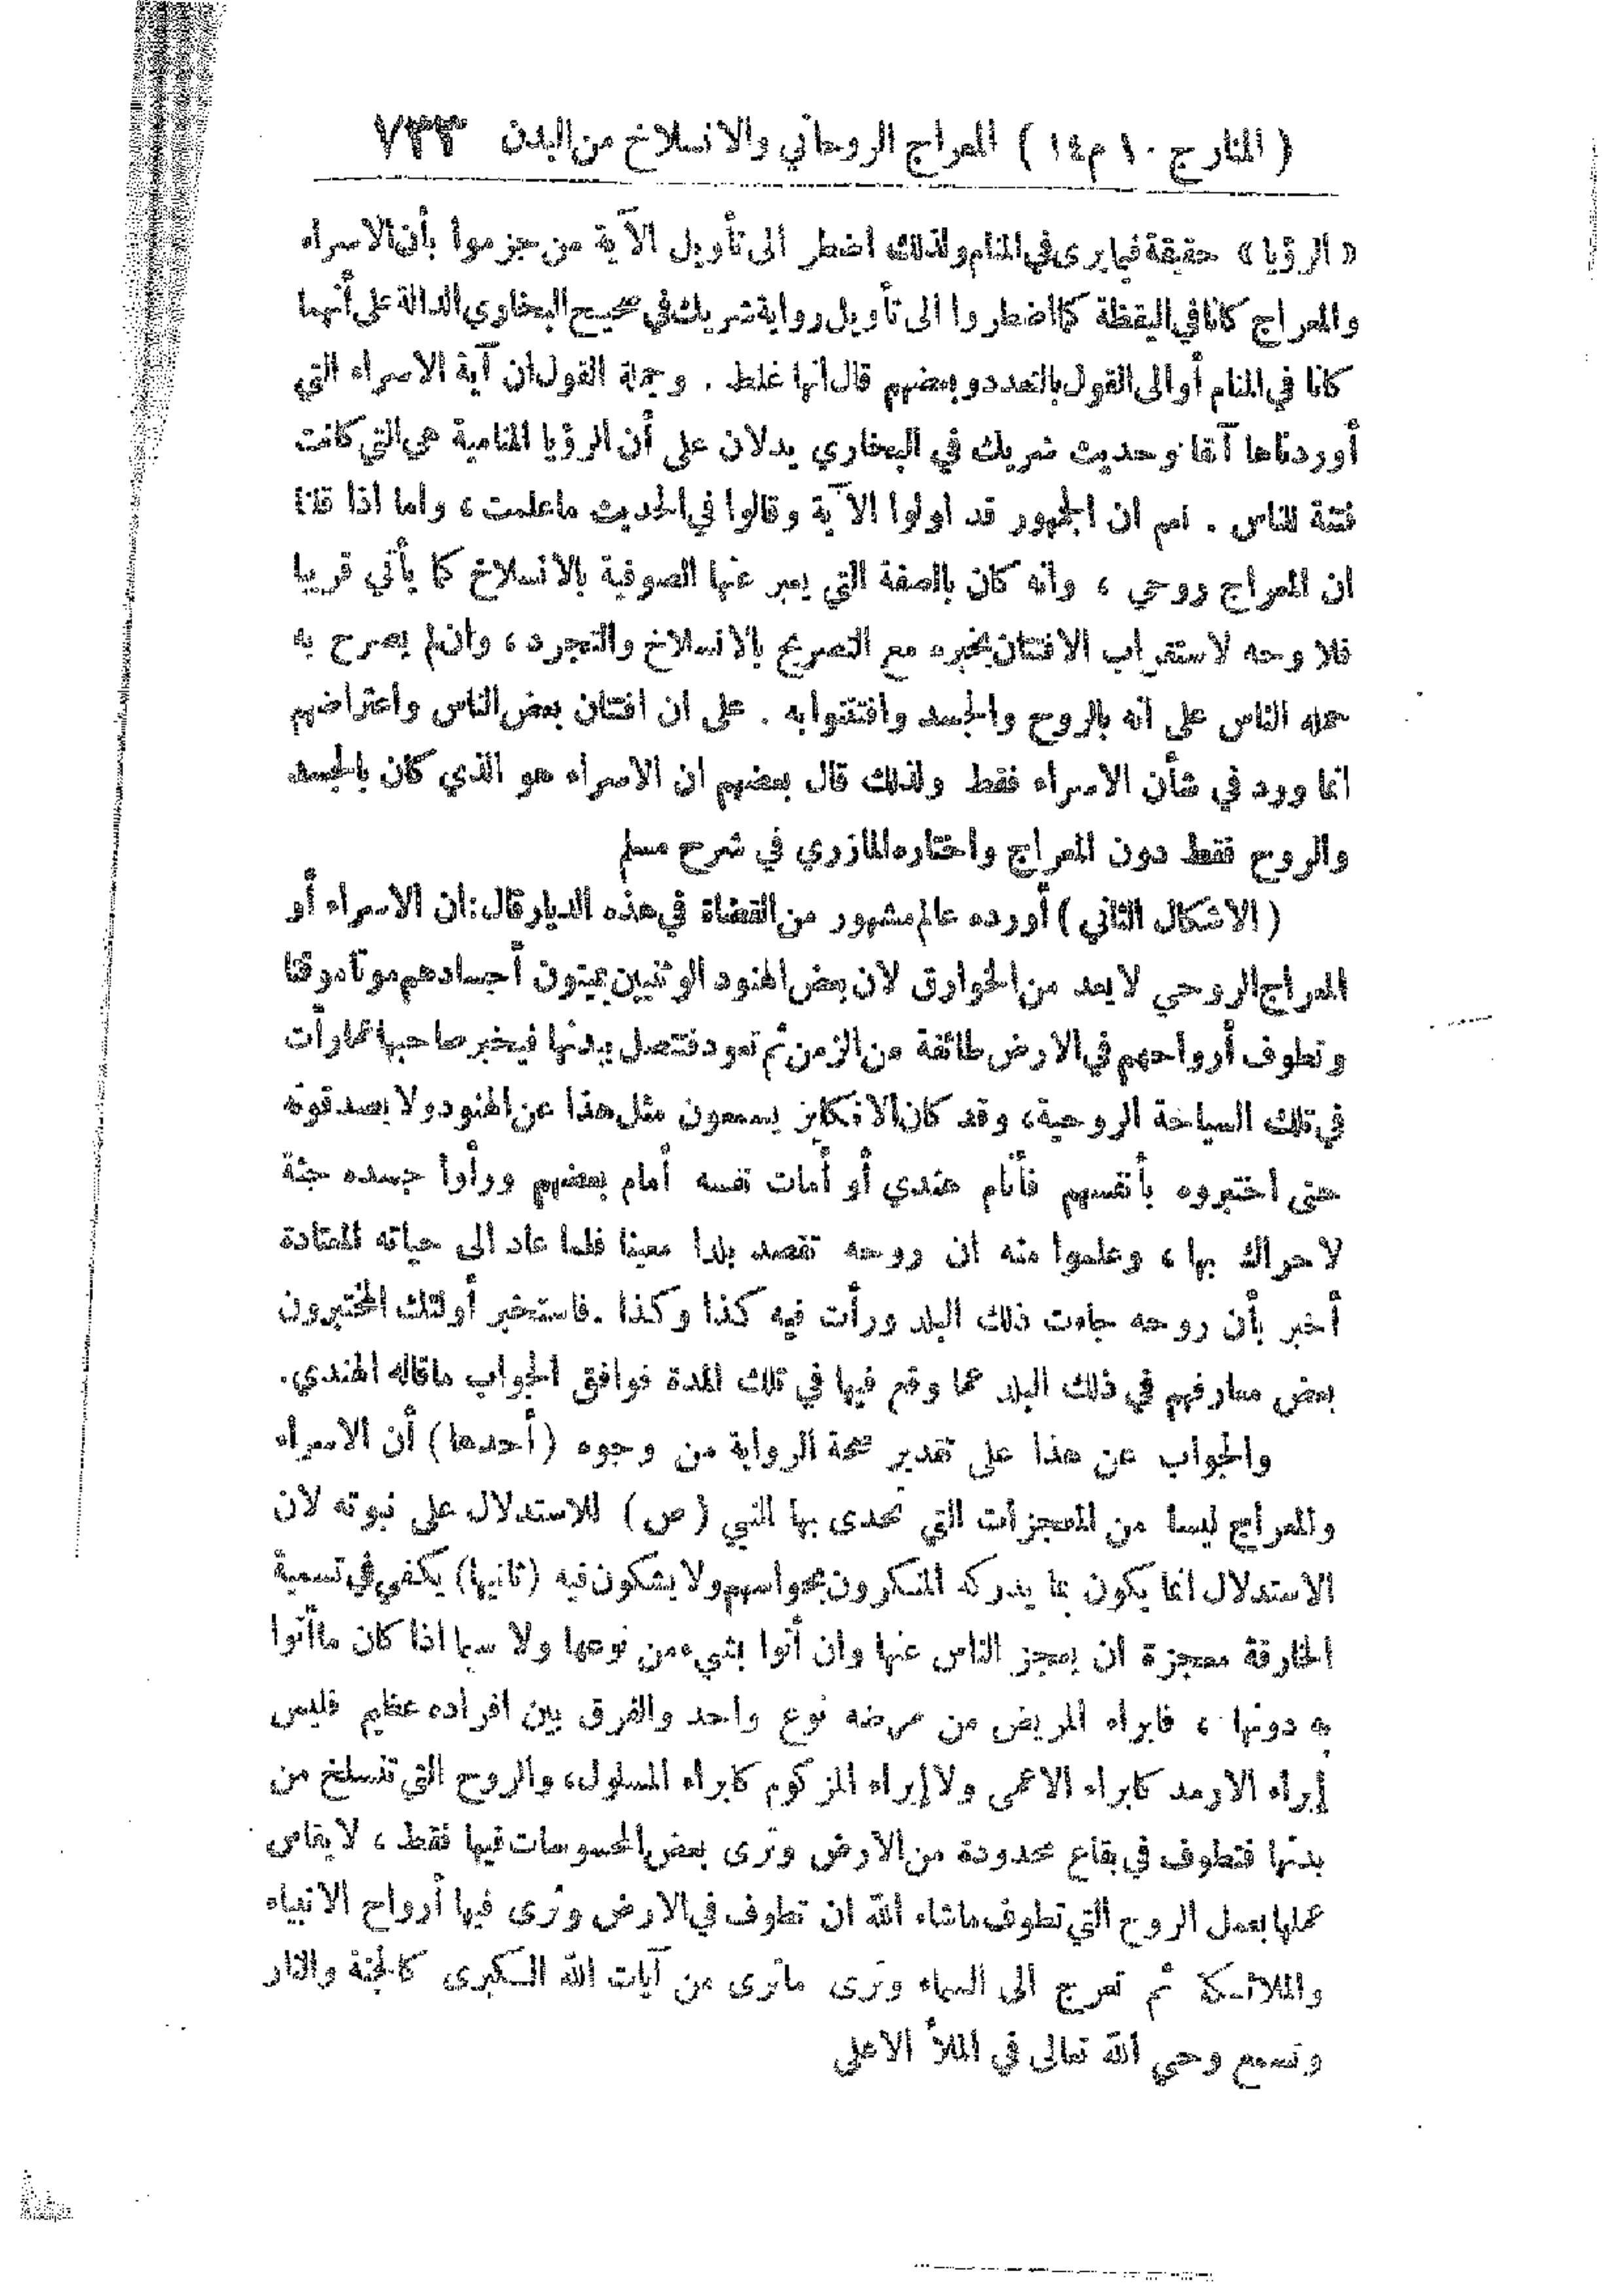 ( المنار ج ١٠ م ١٤ ) المعراج الروحاني والانسلاخ من البدن ٧٣٣
« الرؤيا » حقيقة فيما يرى في المنام ولذلك اضطر الى تأويل الآية من جزموا بأن الاسراء
والمعراج كانا في اليقظة كما اضطروا الى تأويل رواية شريك في صحيح البخاري الدالة على أنهما
كانا في المنام أو الى القول بالتعدد وبعضهم قال انها غلط . وجملة القول ان آية الاسراء التي
أوردناها آنفا وحديث شريك في البخاري يدلان على أن الرؤيا المنامية هي التي كانت
فتنة للناس . نعم ان الجمهور قد اولوا الآية وقالوا في الحديث ما علمت ، واما اذا قلنا
ان المعراج روحي ، وانه كان بالصفة التي يعبر عنها الصوفية بالانسلاخ كما يأتي قريبا
فلا وجه لاستغراب الافتتان بخبره مع التصريح بالانسلاخ والتجرد ، وان لم يصرح به
حمله الناس على انه بالروح والجسد وافتتنوا به . على ان افتتان بعض الناس واعتراضهم
انما ورد في شأن الاسراء فقط ولذلك قال بعضهم ان الاسراء هو الذي كان بالجسد
والروح فقط دون المعراج واختاره المازري في شرح مسلم
( الاشكال الثاني ) أورده عالم مشهور من القضاة في هذه الديار قال : ان الاسراء أو
المعراج الروحي لا يعد من الخوارق لان بعض الهنود الوثنيين يميتون أجسادهم موتا موقتا
وتطوف أرواحهم في الارض طائفة من الزمن ثم تعود فتتصل ببدنها فيخبر صاحبها بما رأت
في تلك السياحة الروحية ، وقد كان الانكليز يسمعون مثل هذا عن الهنود ولا يصدقونه
حتى اختبروه بأنفسهم فأنام هندي أو أمات نفسه أمام بعضهم ورأوا جسده جثة
لا حراك بها ، وعلموا منه ان روحه تقصد بلدا معينا فلما عاد الى حياته المعتادة
أخبر بأن روحه جاءت ذلك البلد ورأت فيه كذا وكذا . فاستخبر أولئك المختبرون
بعض معارفهم في ذلك البلد عما وقع فيها في تلك المدة فوافق الجواب ما قاله الهندي .
والجواب عن هذا على تقدير صحة الرواية من وجوه ( أحدها ) أن الاسراء
والمعراج ليسا من المعجزات التي تحدى بها النبي ( ص ) للاستدلال على نبوته لان
الاستدلال انما يكون بما يدركه المنكرون بحواسهم ولا يشكون فيه ( ثانيها ) يكفي في تسمية
الخارقة معجزة ان يعجز الناس عنها وان أتوا بشيء من نوعها ولا سيما اذا كان ما أتوا
به دونها ، فابراء المريض من مرضه نوع واحد والفرق بين افراده عظيم فليس
إبراء الارمد كابراء الاعمى ولا إبراء المزكوم كابراء المسلول ، والروح التي تنسلخ من
بدنها فتطوف في بقاع محدودة من الارض وترى بعض المحسوسات فيها فقط ، لا يقاس
عملها بعمل الروح التي تطوف ما شاء الله ان تطوف في الارض وترى فيها أرواح الانبياء
والملائكة ثم تعرج الى السماء وترى ما ترى من آيات الله الكبرى كالجنة والنار
وتسمع وحي الله تعالى في الملأ الاعلى